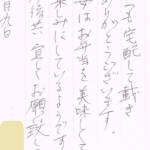 も宅配して戴き
ありがとうございます。
母はお弁当を美味しく
楽しみにしているようです
今後共宜しくお願い致し
月九日